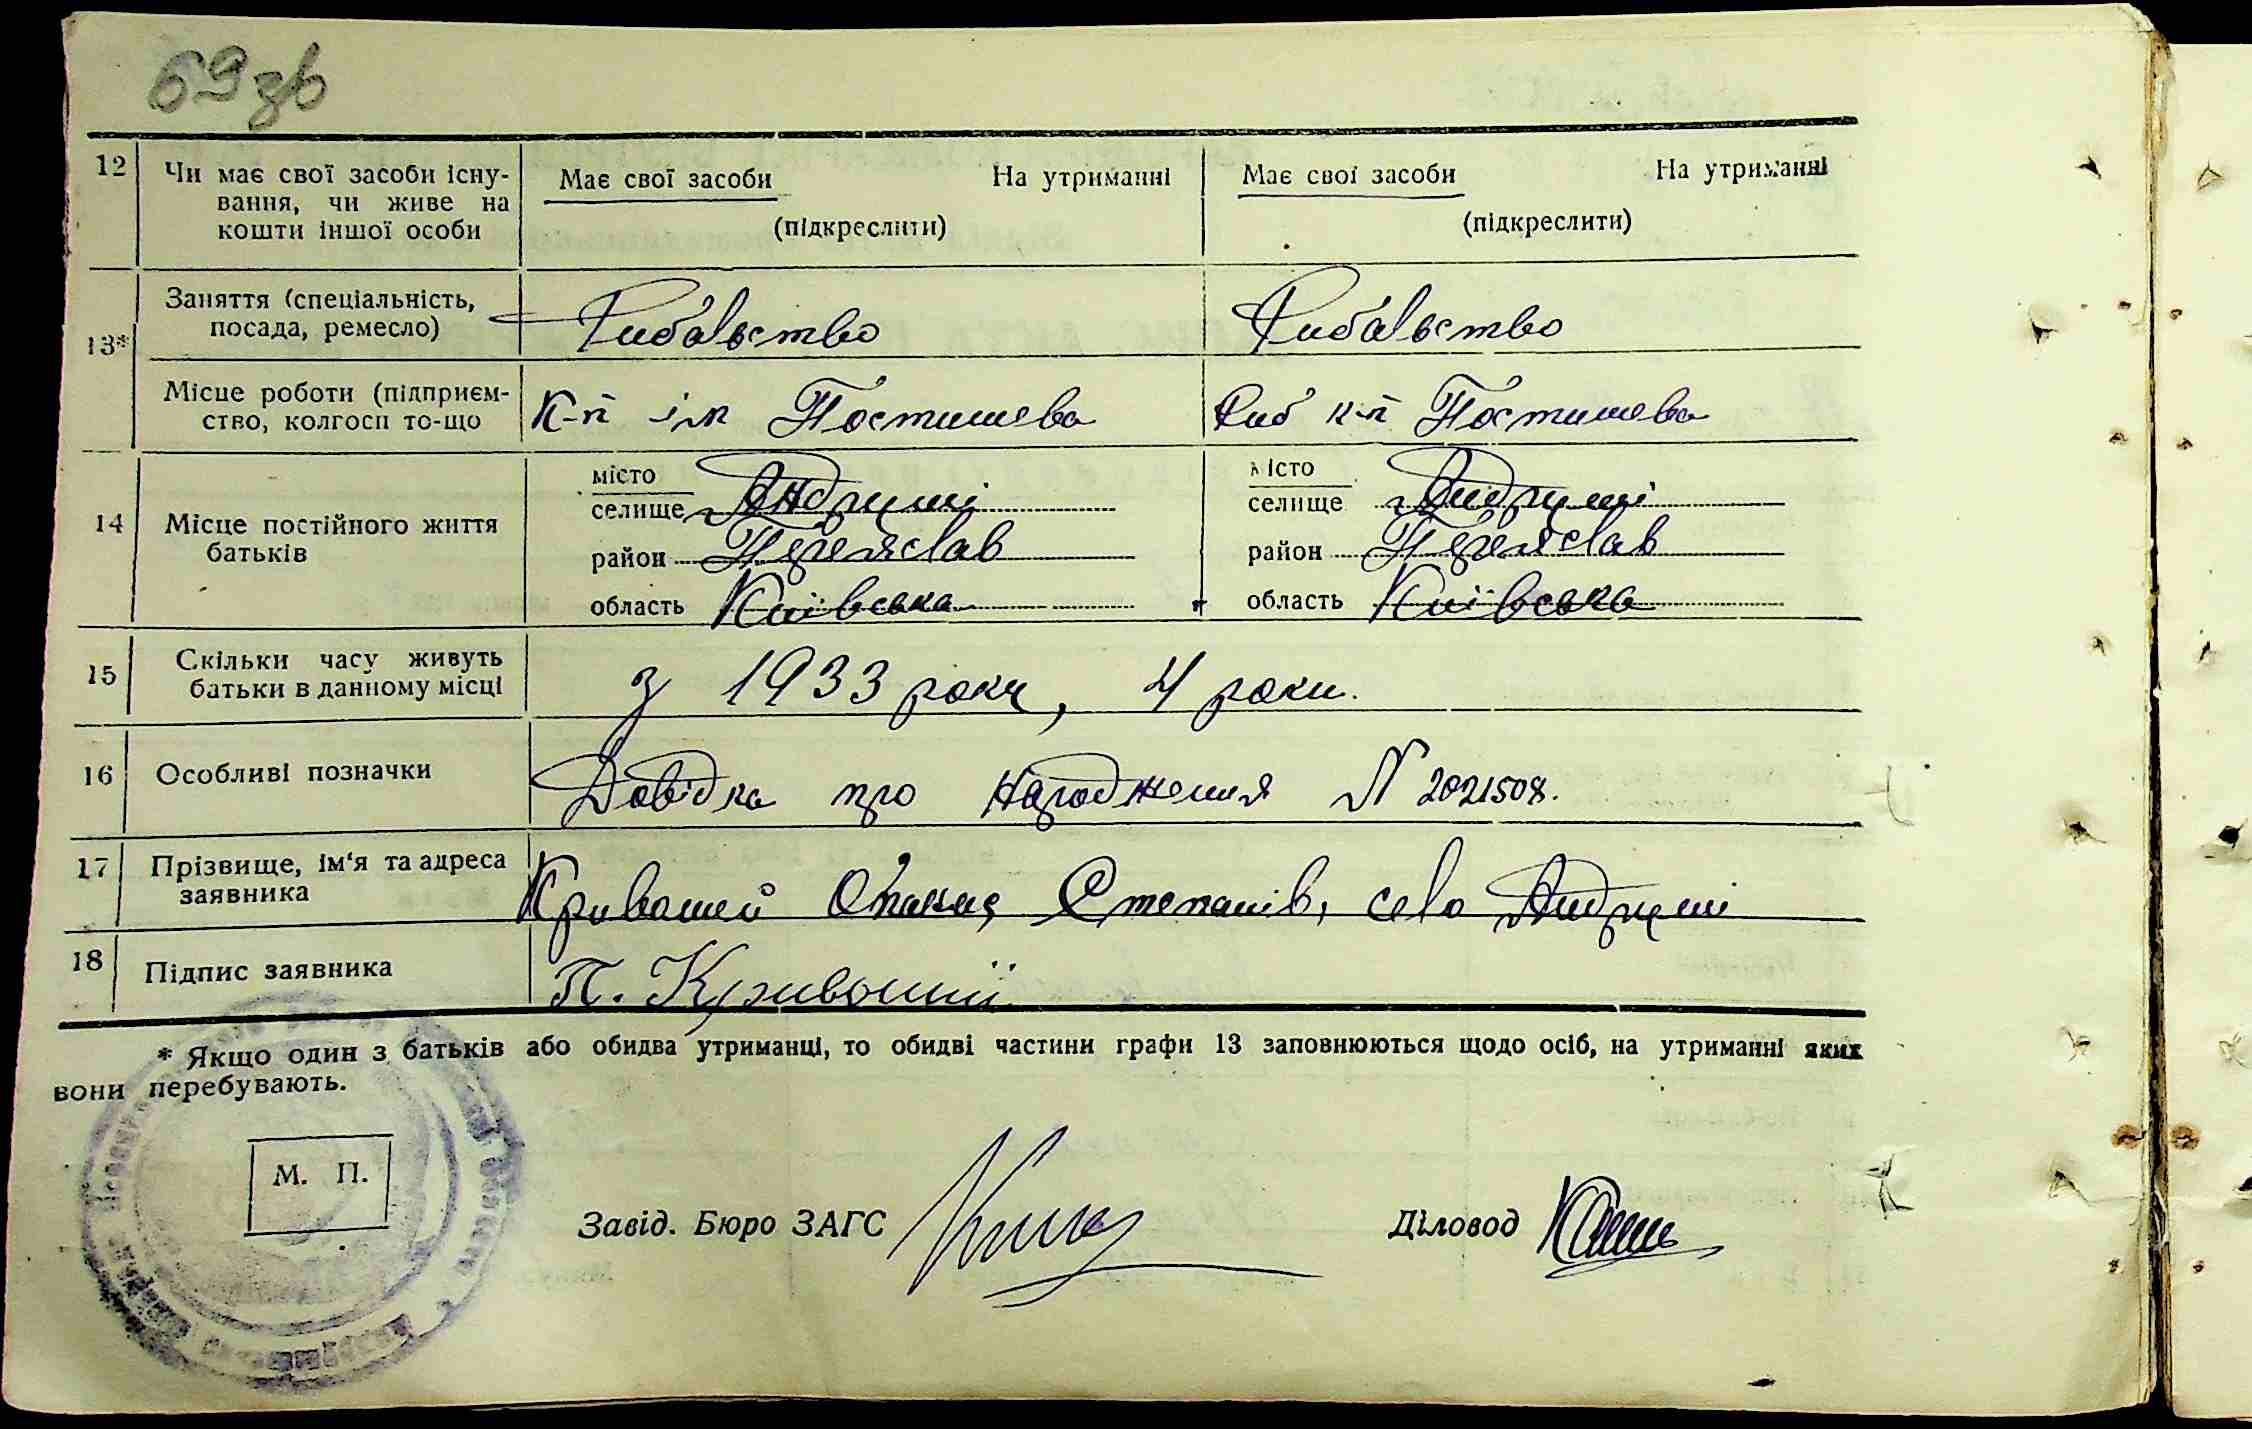 69 зв
12 Чи має свої засоби існу- Має свої засоби На утриманні Має свої засоби На утриманні
вання, чи живе на (підкреслити) (підкреслити)
кошти іншої особи
13* Заняття (спеціальність, Рибальство Рибальство
посада, ремесло)
Місце роботи (підприєм- К-п ім Постишева Риб к-п Постишева
ство, колгосп то-що
14 Місце постійного життя місто місто
батьків селище Андруші селище Андруші
район Переяслав район Переяслав
область Київська область Київська
15 Скільки часу живуть з 1933 року, 4 роки.
батьки в данному місці
16 Особливі позначки Довідка про народження N 2021508.
17 Прізвище, ім'я та адреса Кривошей Опанас Степанів, село Андруші
заявника
18 Підпис заявника П. Кривоший
* Якщо один з батьків або обидва утриманці, то обидві частини графи 13 заповнюються щодо осіб, на утриманні яких
вони перебувають.
М. П.
Завід. Бюро ЗАГС Діловод